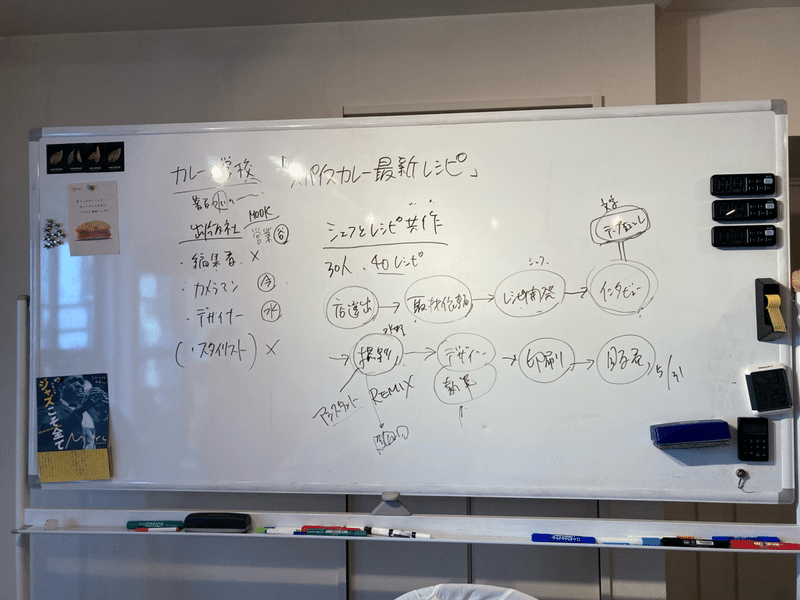 カレーの学校
「スパイスカレー最新レシピ」
MOOK
出版社 営業 谷
・編集者 ×
・カメラマン 今
・デザイナー 水
(・スタイリスト) ×
シェフとレシピ共作
30人、40レシピ
文字
テープ起こし
シェフ
店選出 → 取材依頼 → レシピ開発 → インタビュー
→ 撮影 → デザイン → 印刷 → 発売 5/31
執筆
アシスタント REMIX
ジャズこそ全て
Miles